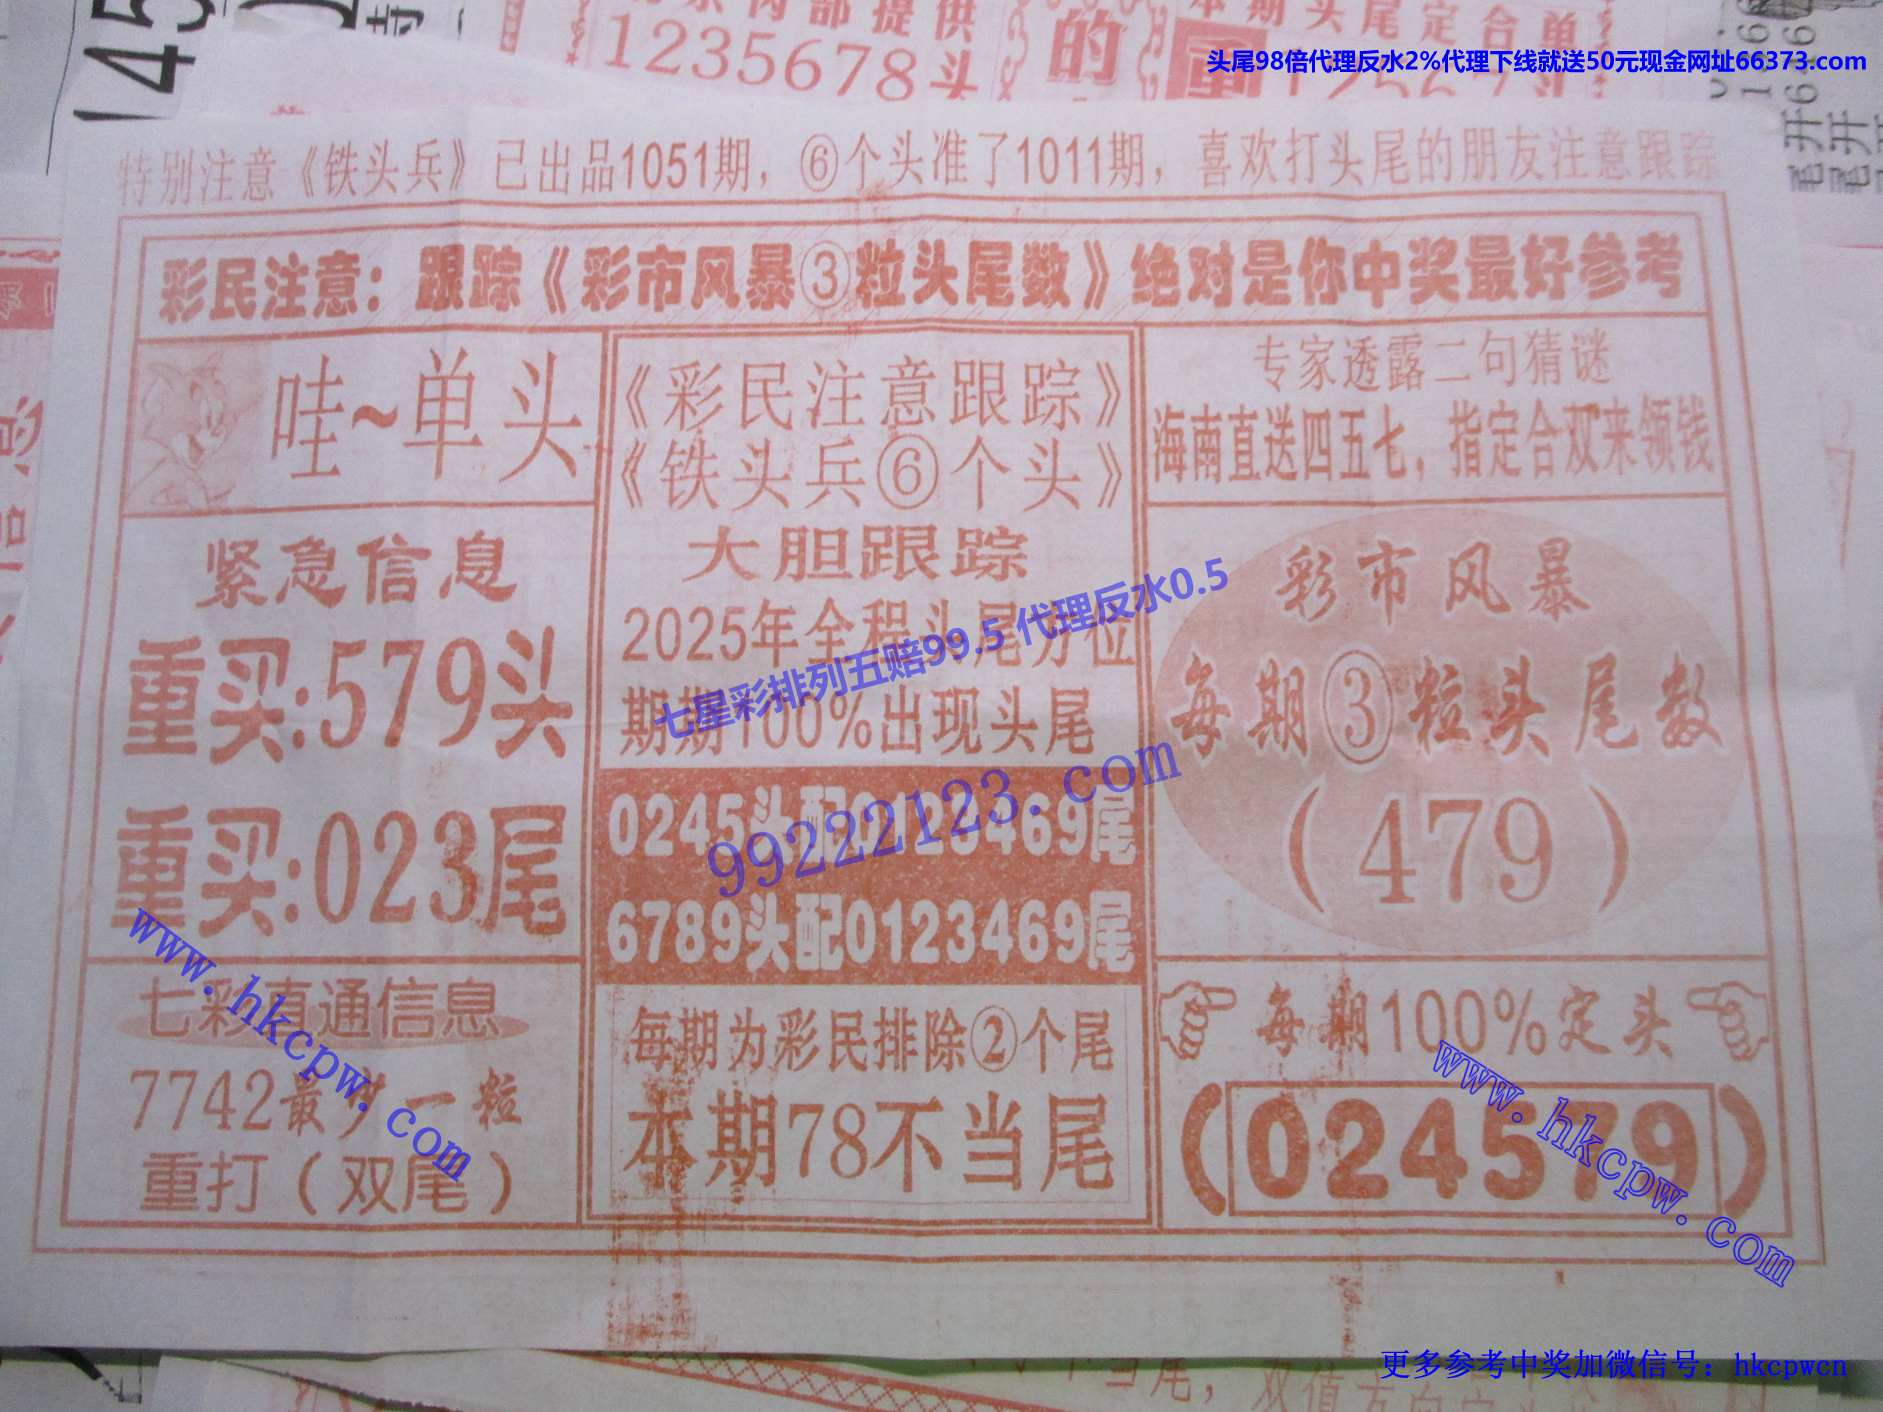 内部提供
1235678头
的
本期头尾定合单
头尾98倍代理反水2%代理下线就送50元现金网址66373.com
特别注意《铁头兵》已出品1051期，⑥个头准了1011期，喜欢打头尾的朋友注意跟踪
彩民注意：跟踪《彩市风暴③粒头尾数》绝对是你中奖最好参考
哇~单头
紧急信息
重买:579头
重买:023尾
七彩直通信息
7742最少一粒
重打（双尾）
《彩民注意跟踪》
《铁头兵⑥个头》
大胆跟踪
2025年全程头尾分位
期期100%出现头尾
0245头配0123469尾
6789头配0123469尾
每期为彩民排除②个尾
本期78不当尾
专家透露二句猜谜
海南直送四五七，指定合双来领钱
彩市风暴
每期③粒头尾数
（479）
每期100%定头
（024579）
七星彩排列五赔99.5 代理反水0.5
99222123.com
www.hkcpw.com
www.hkcpw.com
更多参考中奖加微信号：hkcpwcn